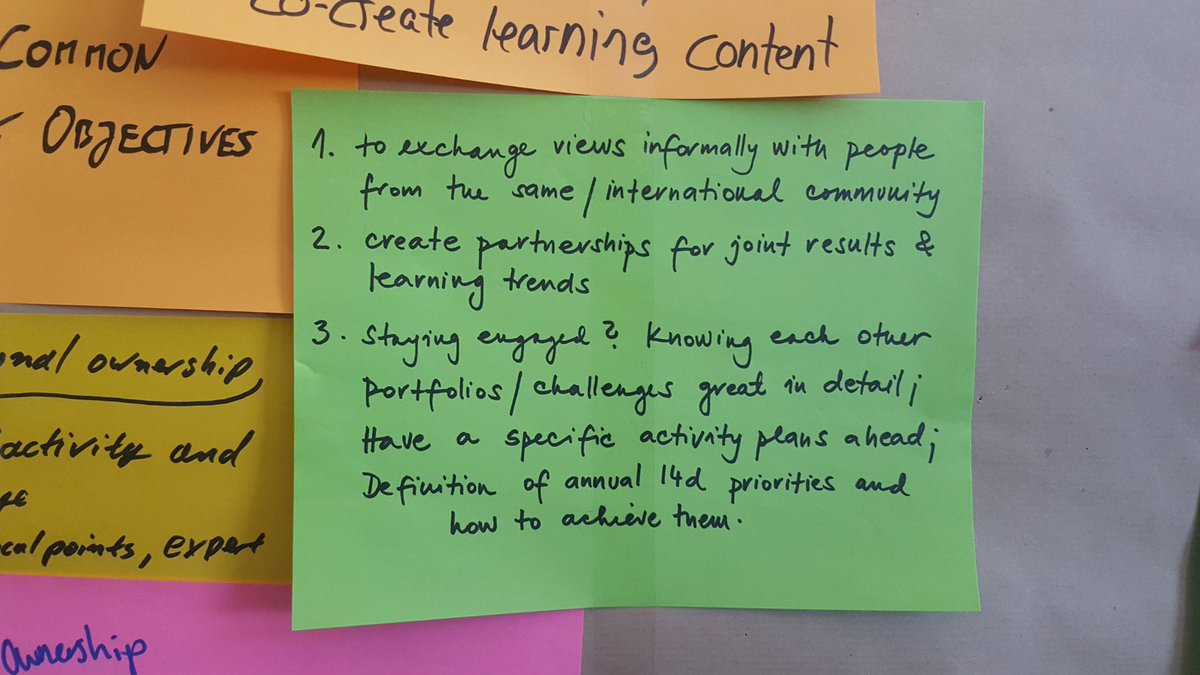 co-create learning content
COMMON
OBJECTIVES
1. to exchange views informally with people
from the same / international community
2. create partnerships for joint results &
learning trends
3. Staying engaged? Knowing each other
portfolios / challenges great in detail;
Have a specific activity plans ahead;
Definition of annual 14d priorities and
how to achieve them.
ownership,
activity and
points, expert
ownership